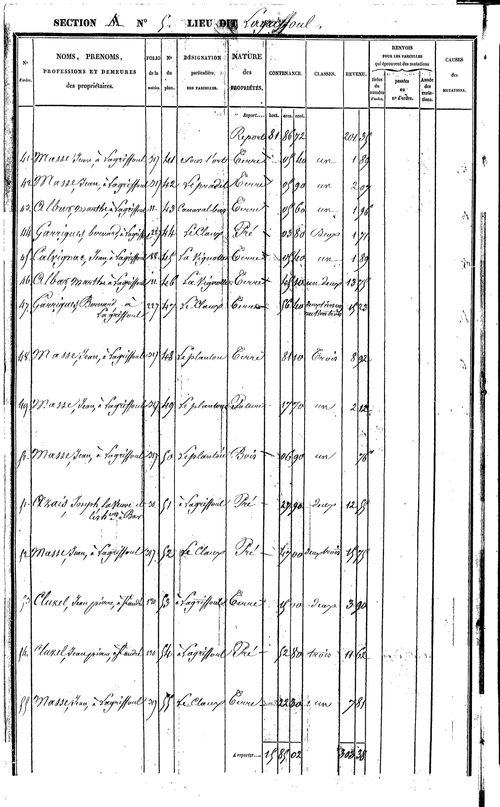 SECTION A N° 5. LIEU DIT Lagriffoul.
N° d'ordre.
NOMS, PRENOMS, PROFESSIONS ET DEMEURES des propriétaires.
FOLIO de la matrice.
N° du plan.
DÉSIGNATION particulière DES PARCELLES.
NATURE des PROPRIÉTÉS.
CONTENANCE.
CLASSES.
REVENU.
RENVOIS POUR LES PARCELLES qui éprouvent des mutations
folios du numéro d'ordre.
passées au n° d'ordre.
Année des mutations.
CAUSES des MUTATIONS.
Report....
hect. ares. cent.
Report 81 86 72 201 35
41. Masse Jean, à Lagriffoul 317 41 Sous l'ort Terre 05 40 un 1 89
42. Masse, Jean, à Lagriffoul 317 42 Le pradel Terre 05 90 un 2 07
43. Albar marthe, à Lagriffoul 11. 43 Terre 05 60 un 1 96
44. Garrigues, bernard, à Lagriffoul 227 44 Le Claux Pré 03 80 Deux 1 71
45. Calvignac, Jean, à Lagriffoul 45 La Vignotte Terre 05 40 un 1 89
46. Albar, marthe à Lagriffoul 11. 46 La Vignotte Terre un deux 13 75
47. Garrigues, Bernard à Lagriffoul 227 47 Le Claux Terre 56 40 15 23
48. Masse, Jean, à Lagriffoul 317 48 Le plantou Terre 81 10 Trois 8 92
49. Masse, Jean, à Lagriffoul 317 49 Le plantou Pature 17 70 un 2 12
50. Masse, Jean, à Lagriffoul 317 50 Le plantou Bois 06 90 un 76
51. Joseph 51 à Lagriffoul Pré 27 90 deux 12 55
52. Masse, Jean, à Lagriffoul 317 52 Le Claux Pré 47 00 deux trois 15 75
53. Cluzel, Jean pierre, à 130 53 à Lagriffoul Terre 15 10 deux 3 90
54. Cluzel, Jean pierre, à 130 54 à Lagriffoul Pré 52 80 trois 11 62
55. Masse, Jean, à Lagriffoul 317 55 Le Claux Terre 22 30 un 7 81
A reporter.... 15 85 02 303 38